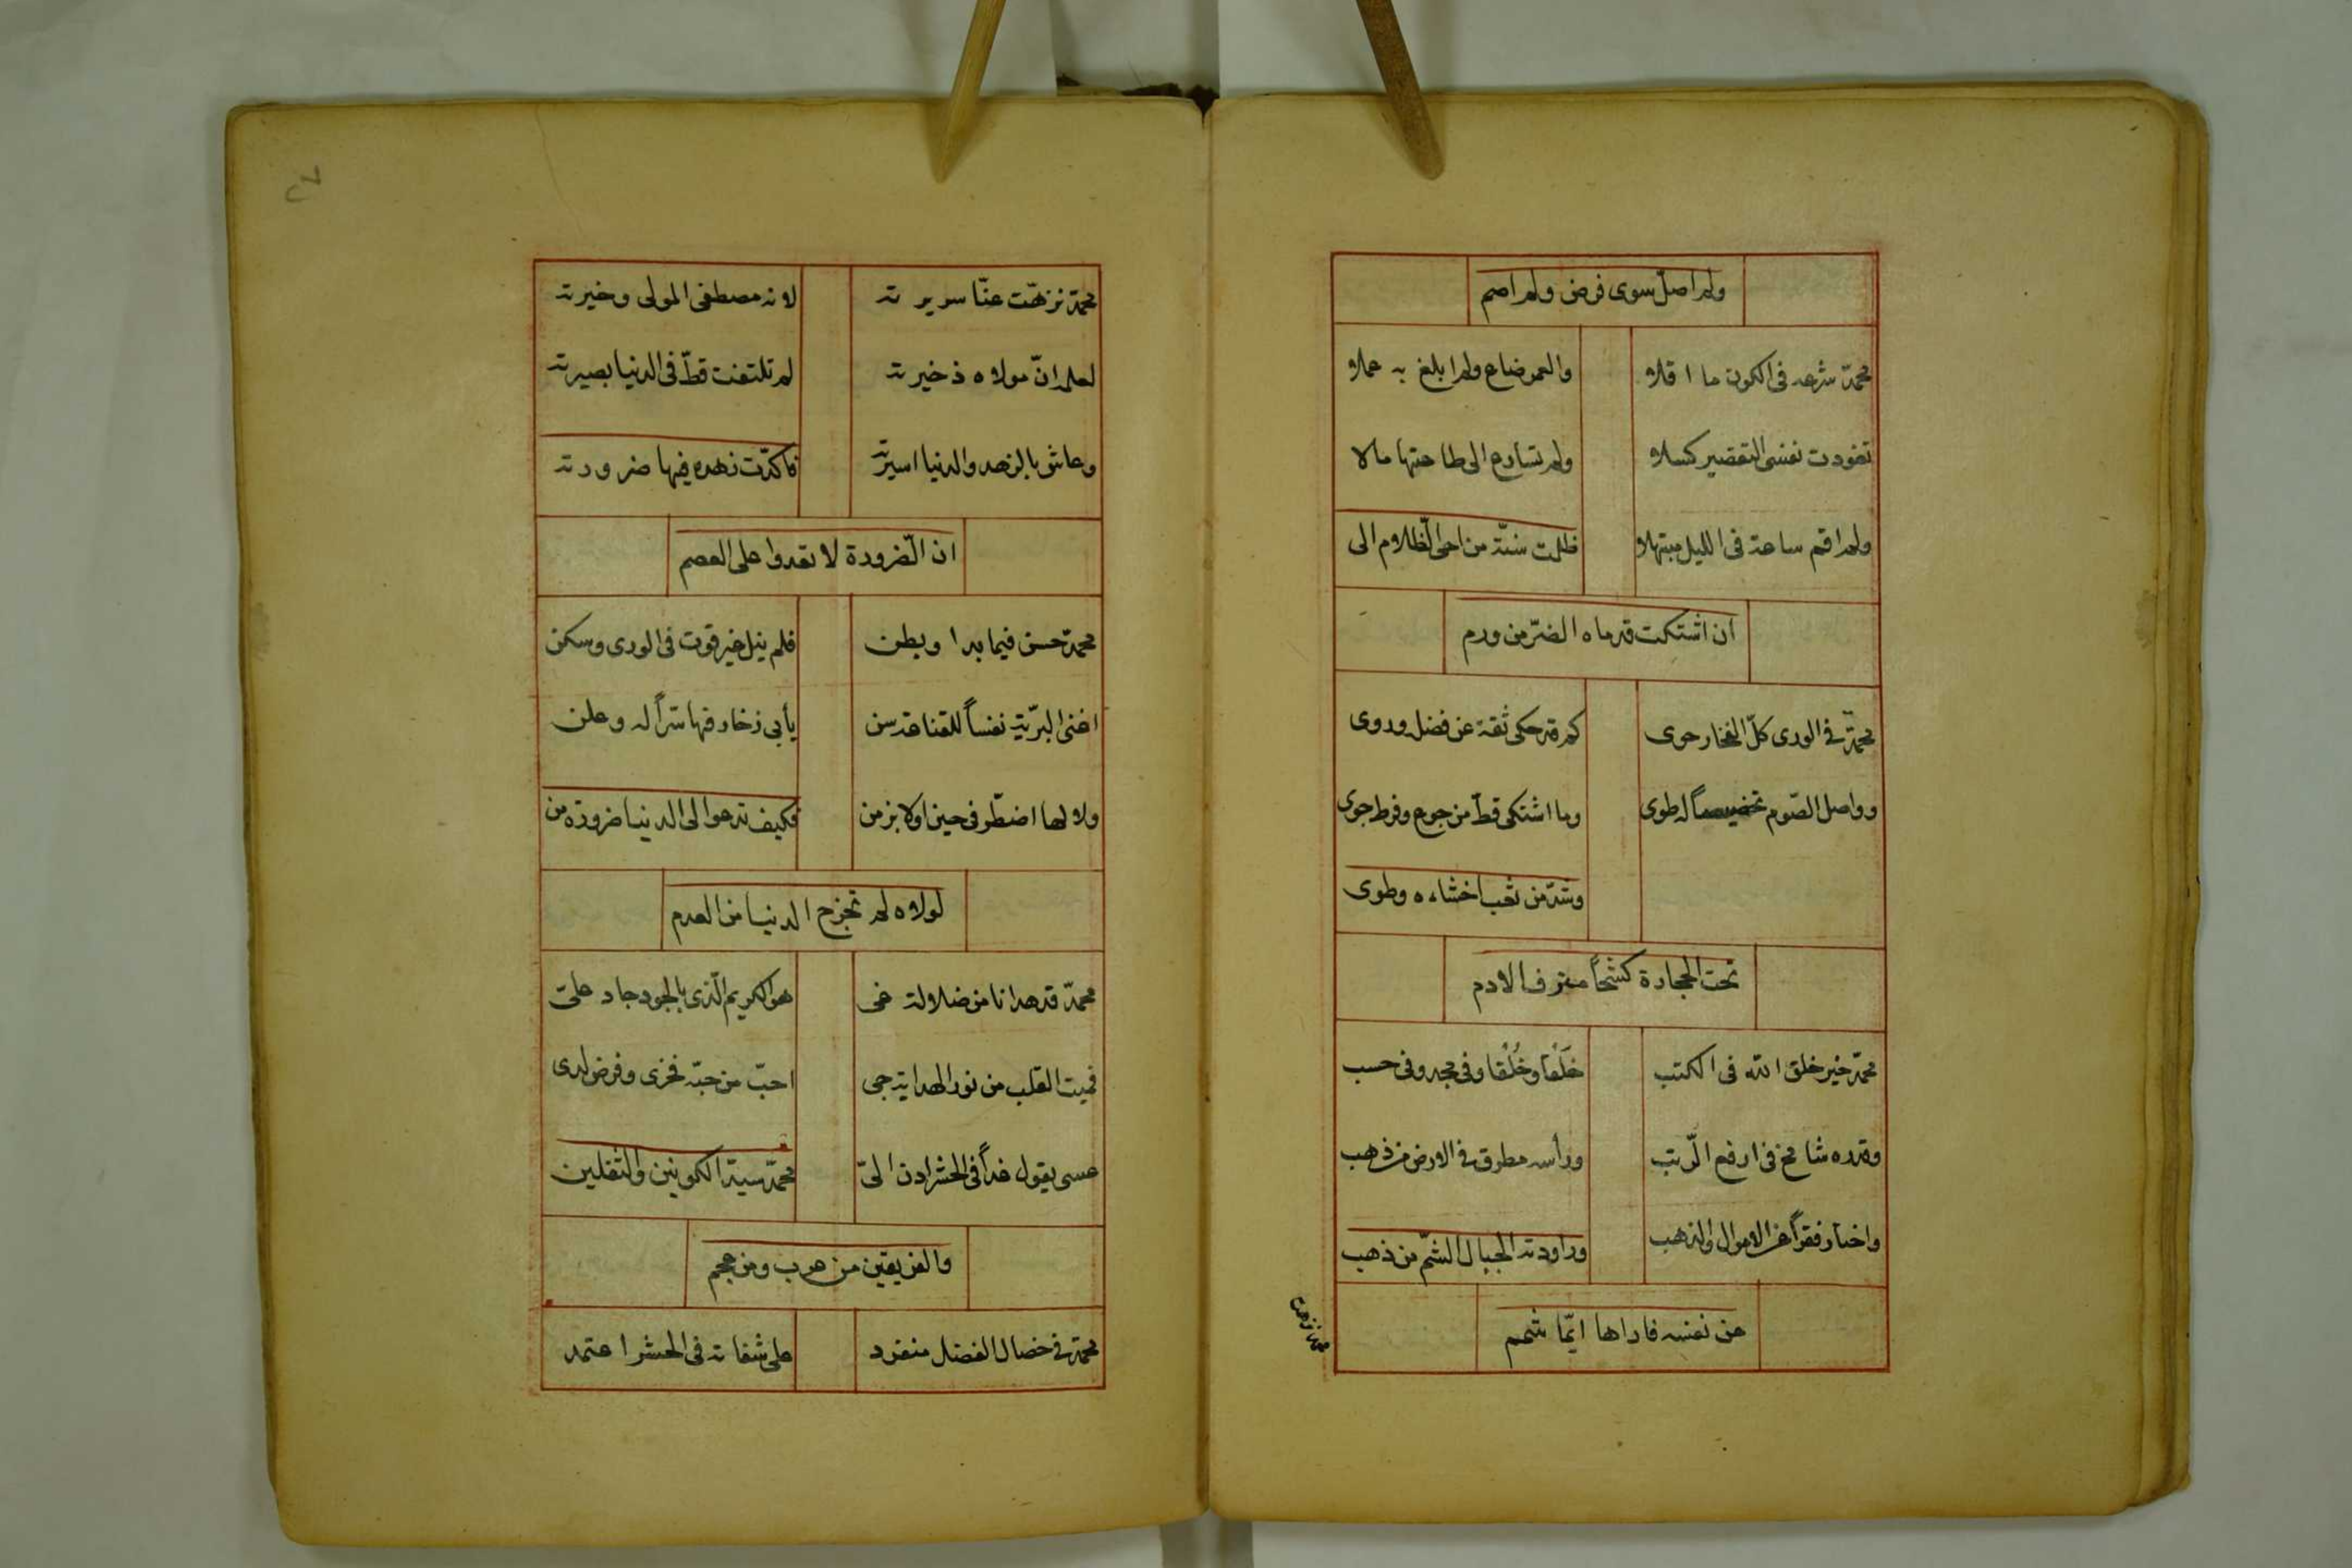 ولم اصلّ سوى فرض ولم اصم
محمّد شرعه فى الكون ما اقلاه والعمر ضاع ولم ابلغ به عملا
تعودت نفسى التقصير كسلا ولم تسارع الى طاعتها مالا
ولم اقم ساعة فى الليل مبتهلا ظلمت سنّة من احى الظّلام الى
ان اشتكت قدماه الضرّ من ورم
محمّد فى الورى كلّ الفخار حوى كم قد حكى ثقة عن فضله وروى
وواصل الصّوم تخصيصاً له طوى وما اشتكى قطّ من جوع وفرط جوى
وشدّ من سغب احشاءه وطوى
تحت الحجارة كشحاً مترف الادم
محمّد خير خلق الله فى الكتب خَلقا وخُلُقا وفى مجد وفى حسب
وقدره شامخ فى ارفع الرّتب ورأسه مطرق فى الارض من ذهب
واختار فقراً عن الاموال والذهب وراودته الجبال الشمّ من ذهب
عن نفسه فاراها ايّما شمم
محمّد نزهت عنّا سريرته لانه مصطفى المولى وخيرته
لعلم انّ مولاه ذخيرته لم تلتفت قطّ فى الدنيا بصيرته
وعاش بالزهد والدنيا اسيرته فاكدّت زهده فيها ضرورته
ان الضّرورة لا تعدوا على العصم
محمّد حسن فيما بدا وبطن فلم ينل خير قوت فى الورى وسكن
اغنى البرّية نفساً للقناعة سن يأبى زخارفها سرّاً له وعلن
ولا لها اضطّر فى حين اولا بزمن فكيف تدعوا الى الدنيا ضرورة من
لولاه لم تخرج الدنيا من العدم
محمّد قد هدانا من ضلالة غى هو الكريم الّذى بالجود جاد علىّ
فميت القلب من نور الهداية حى احبّ من حبّه فخرى وفرض لدى
عسى يقول غداً فى الحشر ادن الىّ محمّد سيّد الكونين والثقلين
والفريقين من عرب ومن عجم
محمّد فى خصال الفضل منفرد على شفاعته فى الحشر اعتمد